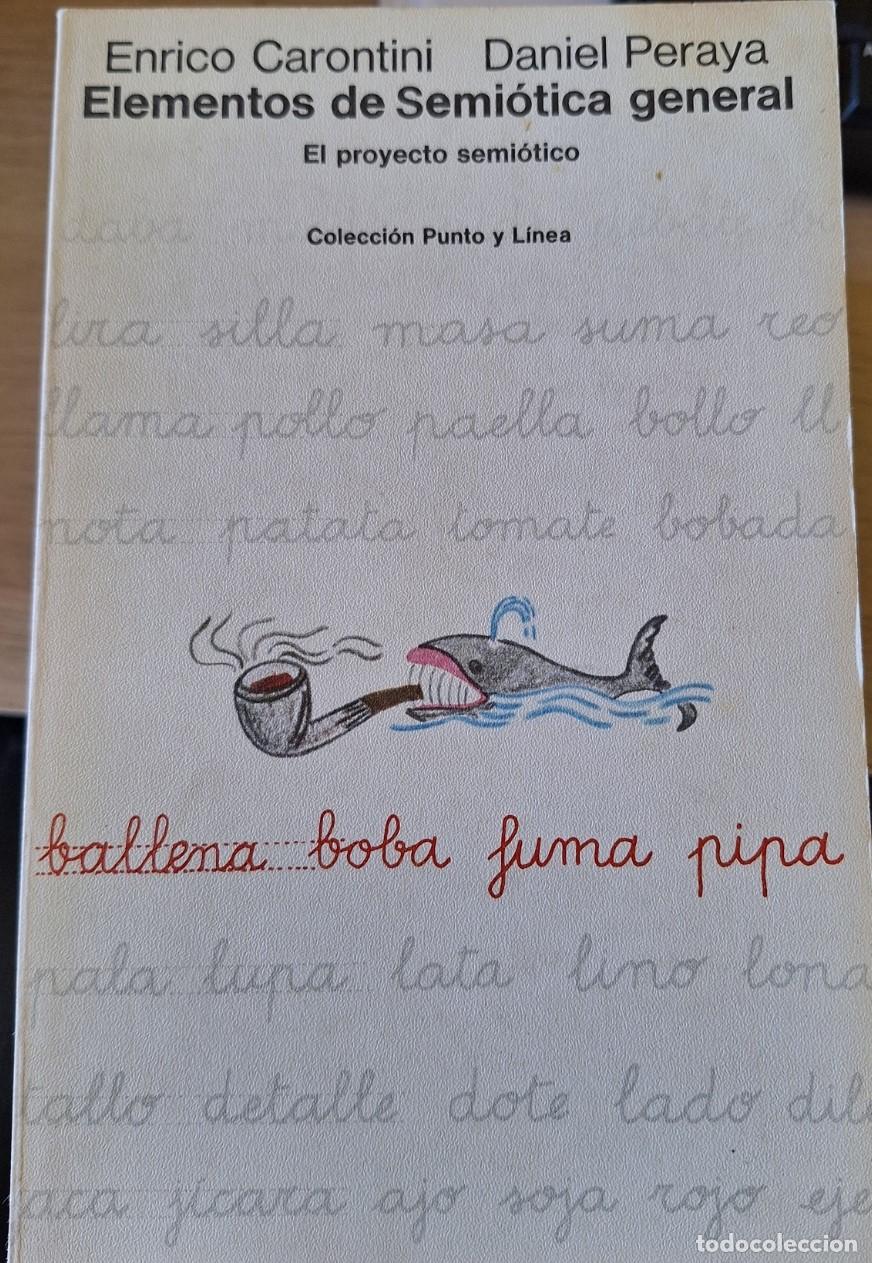 Enrico Carontini Daniel Peraya
Elementos de Semiótica general
El proyecto semiótico
Colección Punto y Línea
lira silla masa suma reo
llama pollo paella bollo ll
nota patata tomate bobada
ballena boba fuma pipa
pala lupa lata lino lona
tallo detalle dote lado dil
aca jícara ajo soja rojo eje
todocoleccion